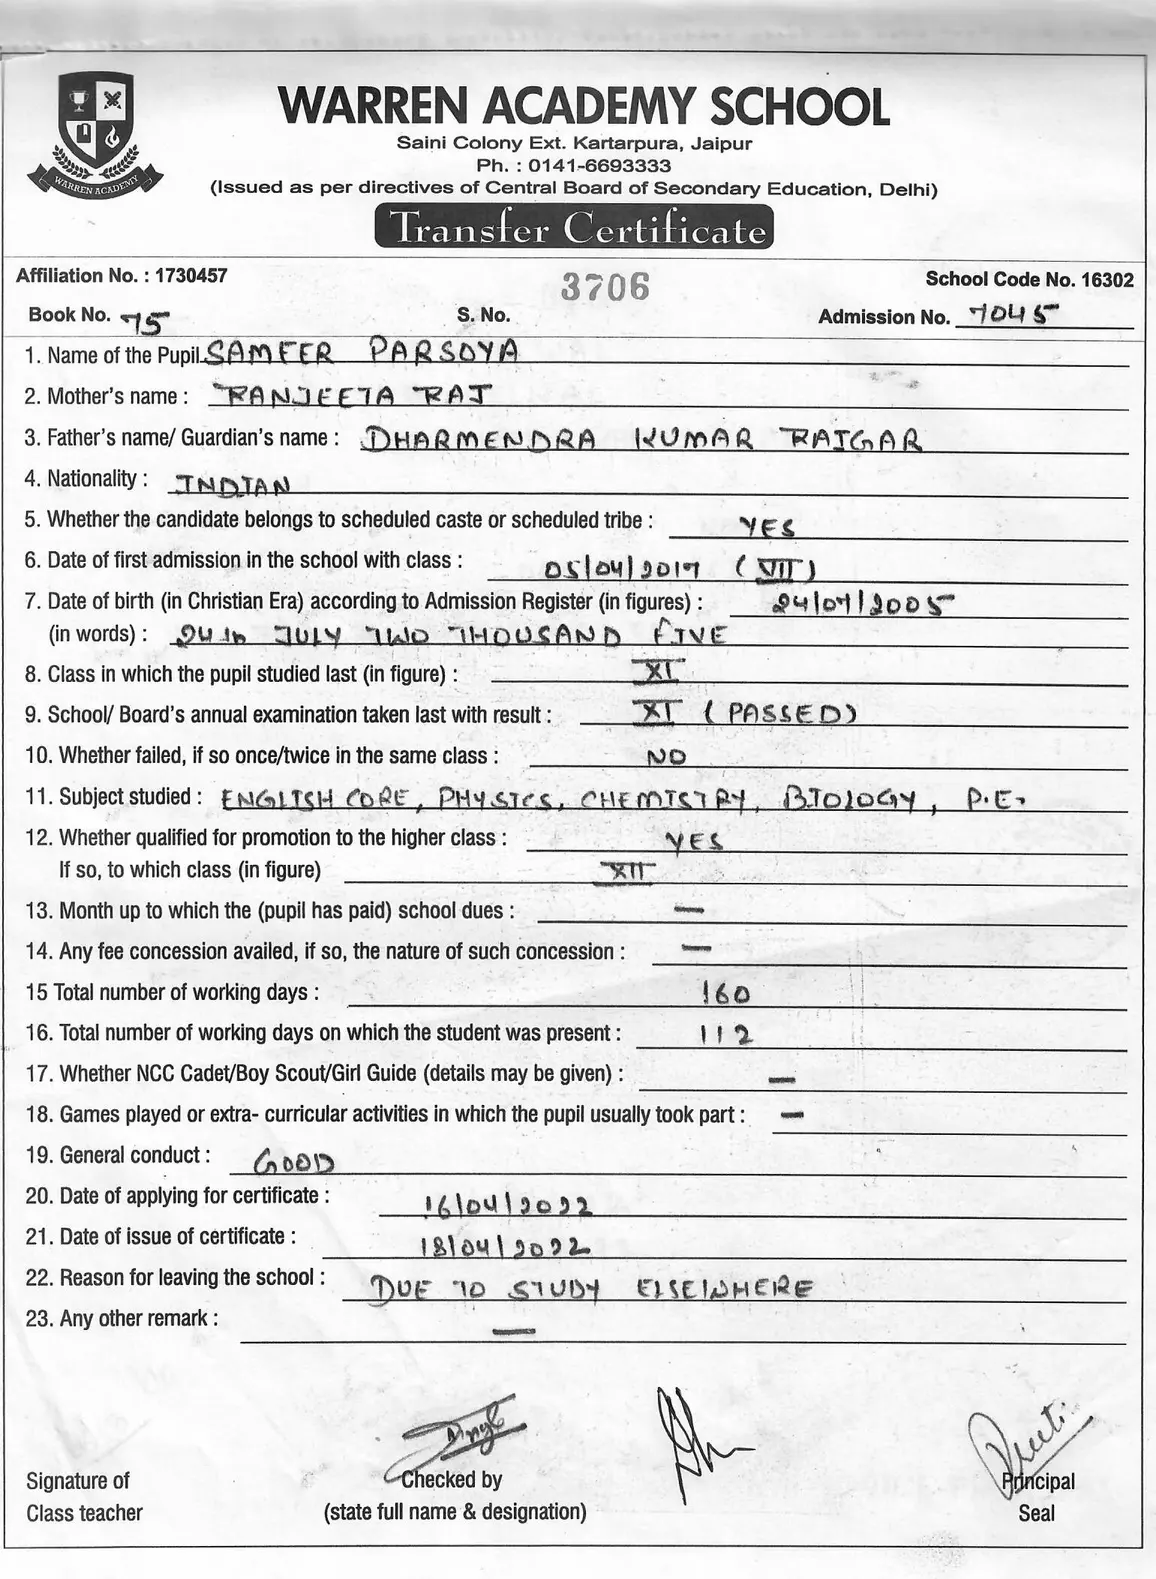 WARREN ACADEMY SCHOOL
WARREN ACADEMY
Saini Colony Ext. Kartarpura, Jaipur
Ph. : 0141-6693333
(Issued as per directives of Central Board of Secondary Education, Delhi)
Transfer Certificate
Affiliation No. : 1730457 3706 School Code No. 16302
Book No. 75 S. No. Admission No. 7045
1. Name of the Pupil SAMEER PARSOYA
2. Mother's name : RANJEETA RAJ
3. Father's name/ Guardian's name : DHARMENDRA KUMAR RAIGAR
4. Nationality : INDIAN
5. Whether the candidate belongs to scheduled caste or scheduled tribe : YES
6. Date of first admission in the school with class : 05/04/2017 (VII)
7. Date of birth (in Christian Era) according to Admission Register (in figures) : 24/07/2005
(in words) : 24th JULY TWO THOUSAND FIVE
8. Class in which the pupil studied last (in figure) : XI
9. School/ Board's annual examination taken last with result : XI (PASSED)
10. Whether failed, if so once/twice in the same class : NO
11. Subject studied : ENGLISH CORE, PHYSICS, CHEMISTRY, BIOLOGY, P.E.
12. Whether qualified for promotion to the higher class : YES
If so, to which class (in figure) XII
13. Month up to which the (pupil has paid) school dues : —
14. Any fee concession availed, if so, the nature of such concession : —
15 Total number of working days : 160
16. Total number of working days on which the student was present : 112
17. Whether NCC Cadet/Boy Scout/Girl Guide (details may be given) : —
18. Games played or extra- curricular activities in which the pupil usually took part : —
19. General conduct : GOOD
20. Date of applying for certificate : 16/04/2022
21. Date of issue of certificate : 18/04/2022
22. Reason for leaving the school : DUE TO STUDY ELSEWHERE
23. Any other remark : —
Preeti
Signature of Checked by Principal
Class teacher (state full name & designation) Seal